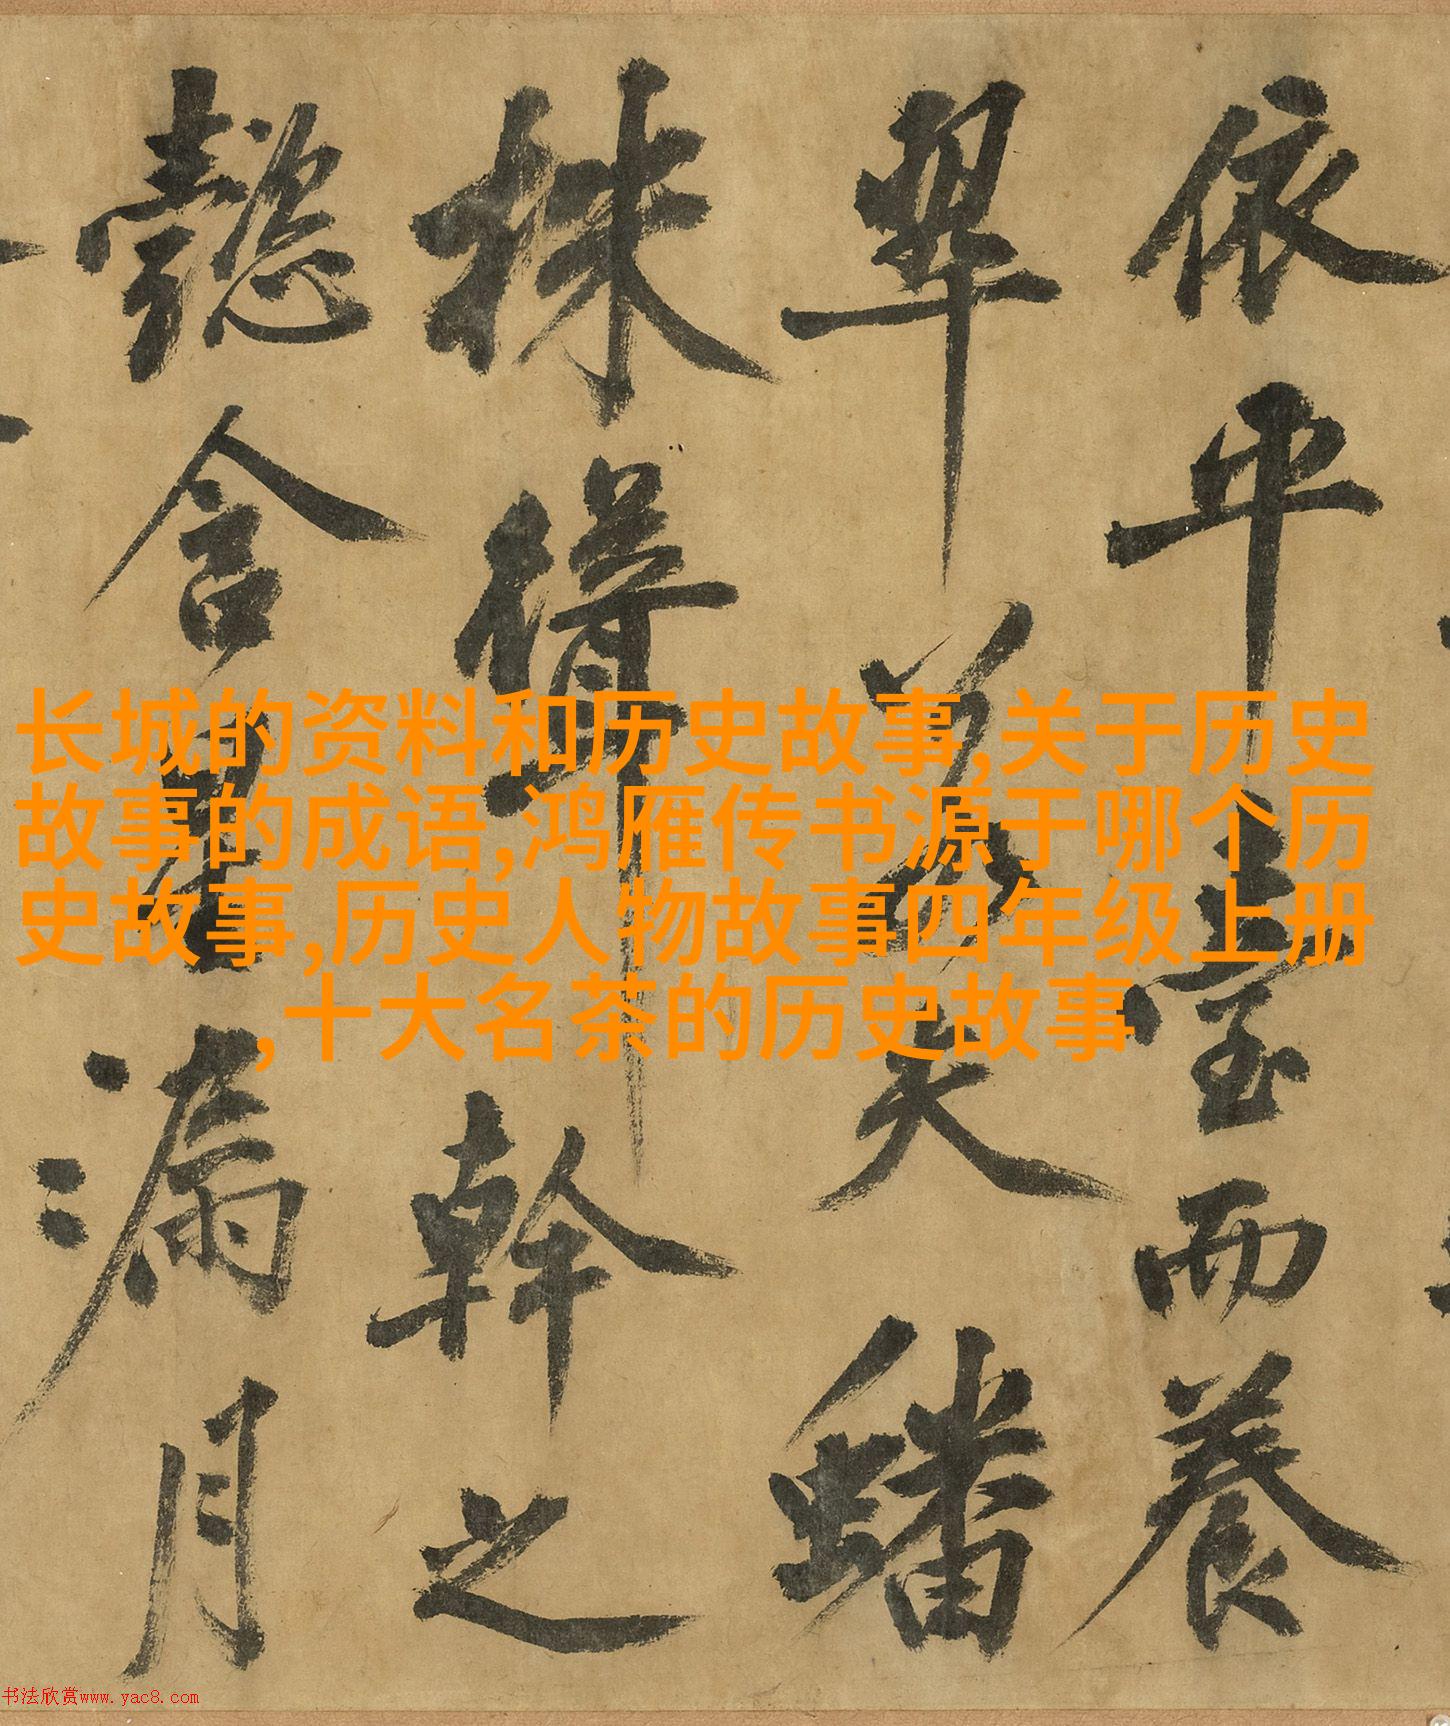 依平臺而養
翠若夫蟠
株幹之
懿含星漏月
长城的资料和历史故事,关于历史
故事的成语,鸿雁传书源于哪个历
史故事,历史人物故事四年级上册
,十大名茶的历史故事
书法欣赏www.yac8.com